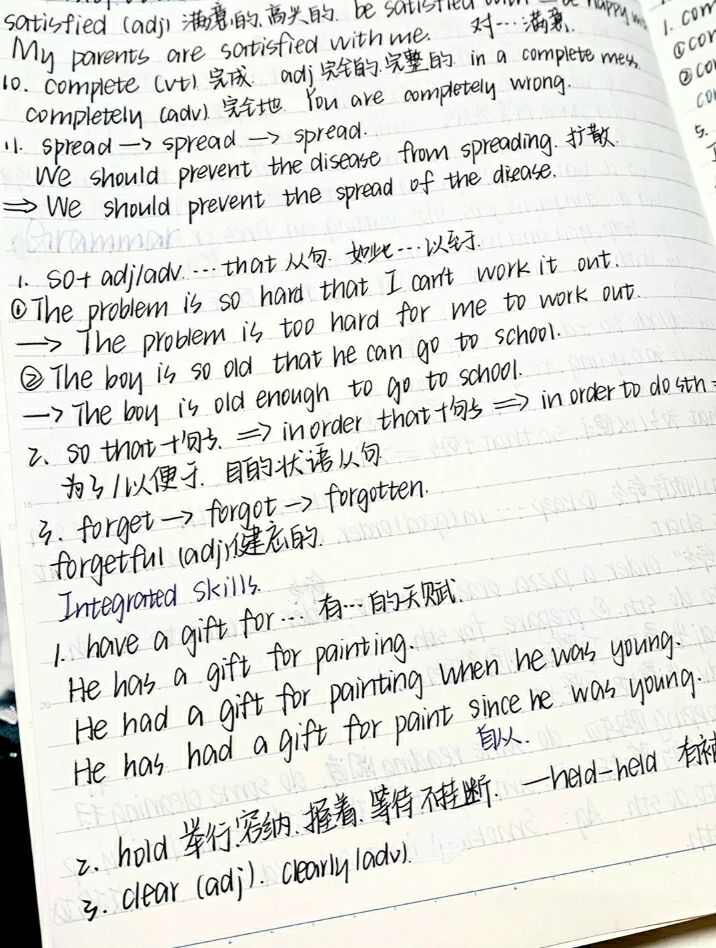 satisfied (adj) 满意的,高兴的. be satisfied with = be happy wi
My parents are satisfied with me. 对…满意.
10. complete (vt) 完成 adj 完全的.完整的 in a complete mess.
completely (adv) 完全地. You are completely wrong.
11. spread → spread → spread.
We should prevent the disease from spreading. 扩散
⇒ We should prevent the spread of the disease.
Grammar
1. so+ adj/adv. … that 从句. 如此…以至于.
① The problem is so hard that I can't work it out.
→ The problem is too hard for me to work out.
② The boy is so old that he can go to school.
→ The boy is old enough to go to school.
2. so that +句子. ⇒ in order that +句子 ⇒ in order to do sth =
为了/以便于. 目的状语从句
3. forget → forgot → forgotten.
forgetful (adj) 健忘的.
Integrated skills.
1. have a gift for… 有…的天赋.
He has a gift for painting.
He had a gift for painting when he was young.
He has had a gift for paint since he was young.
自从.
2. hold 举行.容纳.握着.等待不挂断. —held-held
3. clear (adj). clearly (adv).
1. com
① con
② co
co
5.